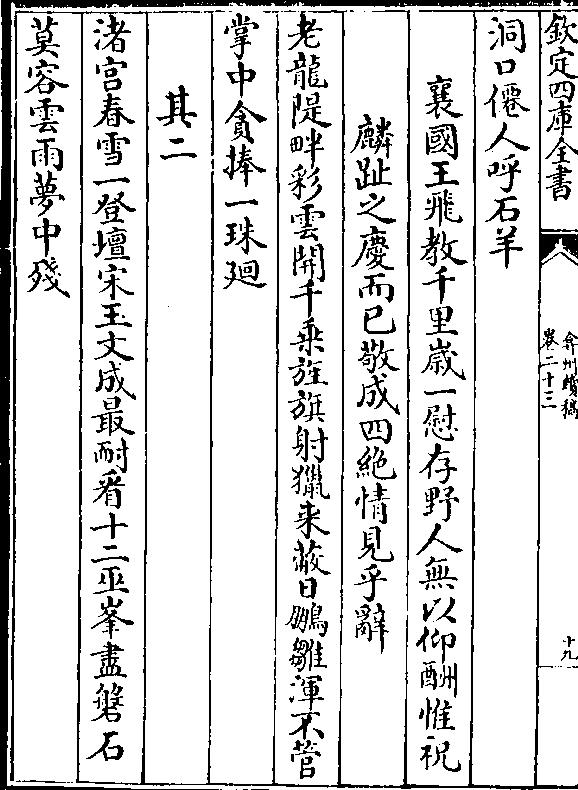 欽定四庫全書
弇州續稿
卷二十三
十九
洞口僊人呼石羊
襄國王飛教千里歲一慰存野人無以仰酬惟祝
麟趾之慶而已敬成四絶情見乎辭
老龍隄畔彩雲開千乗旌旗射獵来蔽日鵬雛渾不管
掌中貪捧一珠廻
其二
渚宫春雪一登壇宋玉文成最耐看十二巫峯盡磐石
莫容雲雨夢中殘